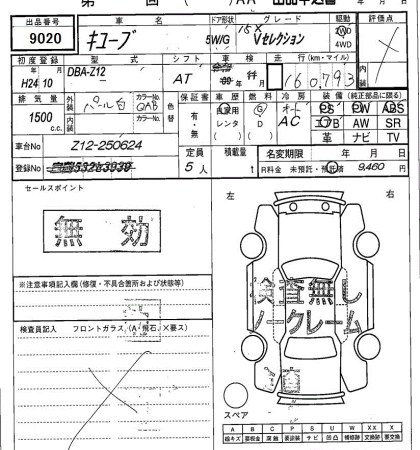 出品番号
車 名
ドア形状
グレード
駆動
評価点
9020
キューブ
5W/G
15X
Vセレクション
2WD
4WD
初度登録
型 式
シフト
車 検
走行(km・マイル)
内装
年 月
H24 10
DBA-Z12
AT
160,793
排気量
外装
パール白
カラーNo.
QAB
色替
保証書
車歴
燃料
冷房
装備(純正部品に限る)
1500
c.c.
内装
カラーNo.
有・無
自家用
レンタ
G
D
オート
AC
PS PW ABS
エアB AW SR
革 ナビ TV
車台No
Z12-250624
定員
積載量
名変期限
年 月 日
登録No
5人
t
R料金 未預託・預託済 9,460 円
セールスポイント
左
右
無 効
※注意事項記入欄(修復・不具合箇所および状態等)
検査無し
ノークレーム
検査員記入
フロントガラス(A・飛石・X要ス)
スペア
A B C P S U W XX X
線キズ 要板金 腐蝕 要塗装 サビ 凹凸 補修跡 交換跡 要交換